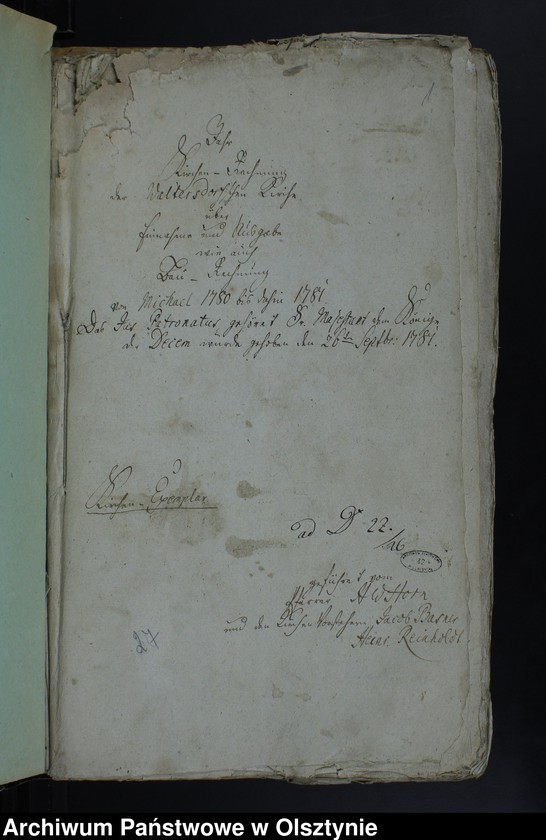 Jahr
Kirchen-Rechnung
der Waltersdorffschen Kirche
über
Einnahme und Ausgabe
wie auch
Bau-Rechnung
von Michael 1780 bis dahin 1781.
Das Jus Patronatus gehöret Sr. Majestaet dem König
der Decem wurde gehoben den 26ten Septbr: 1781.
Kirchen-Exemplar
ad D 22.
/26
geführet vom
Pfarrer Horn
und den Kirchen Vorstehern Jacob Basner
Heinr. Reinholdt.
27
Archiwum Państwowe w Olsztynie